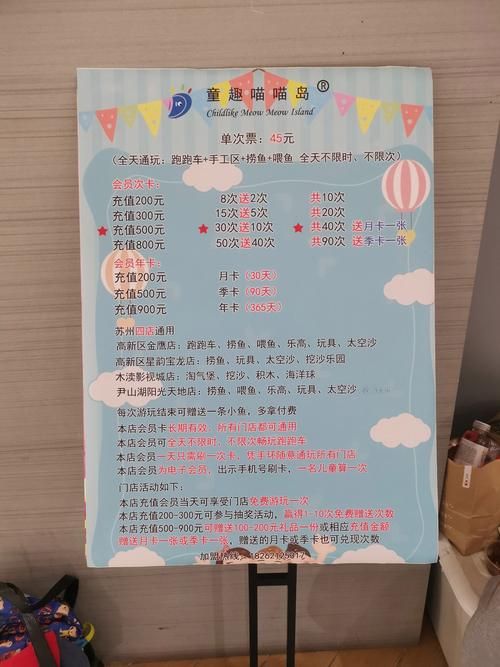 童趣喵喵岛®
Childlike Meow Meow Island
单次票：45元
（全天通玩：跑跑车+手工区+捞鱼+喂鱼 全天不限时、不限次）
会员次卡：
充值200元 8次送2次 共10次
充值300元 15次送5次 共20次
充值500元 30次送10次 共40次 送月卡一张
充值800元 50次送40次 共90次 送季卡一张
会员年卡：
充值200元 月卡（30天）
充值500元 季卡（90天）
充值900元 年卡（365天）
苏州四店通用
高新区金鹰店：跑跑车、捞鱼、喂鱼、乐高、玩具、太空沙
高新区星韵宝龙店：捞鱼、玩具、太空沙、挖沙乐园
木渎影视城店：淘气堡、挖沙、积木、海洋球
尹山湖阳光天地店：捞鱼、喂鱼、乐高、玩具、太空沙
每次游玩结束可赠送一条小鱼，多拿付费
本店会员卡长期有效、所有门店都可通用
本店会员可全天不限时、不限次畅玩跑跑车
本店会员一天只需刷一次卡、凭手环随意通玩所有门店
本店会员为电子会员，出示手机号刷卡，一名儿童算一次
门店活动如下：
本店充值会员当天可享受门店免费游玩一次
本店充值200-300元可参与抽奖活动，赢得1-10次免费赠送次数
本店充值500-900元可赠送100-200元礼品一份或相应充值金额
赠送月卡一张或季卡一张，赠送的月卡或季卡也可兑现次数
加盟热线：18262125017